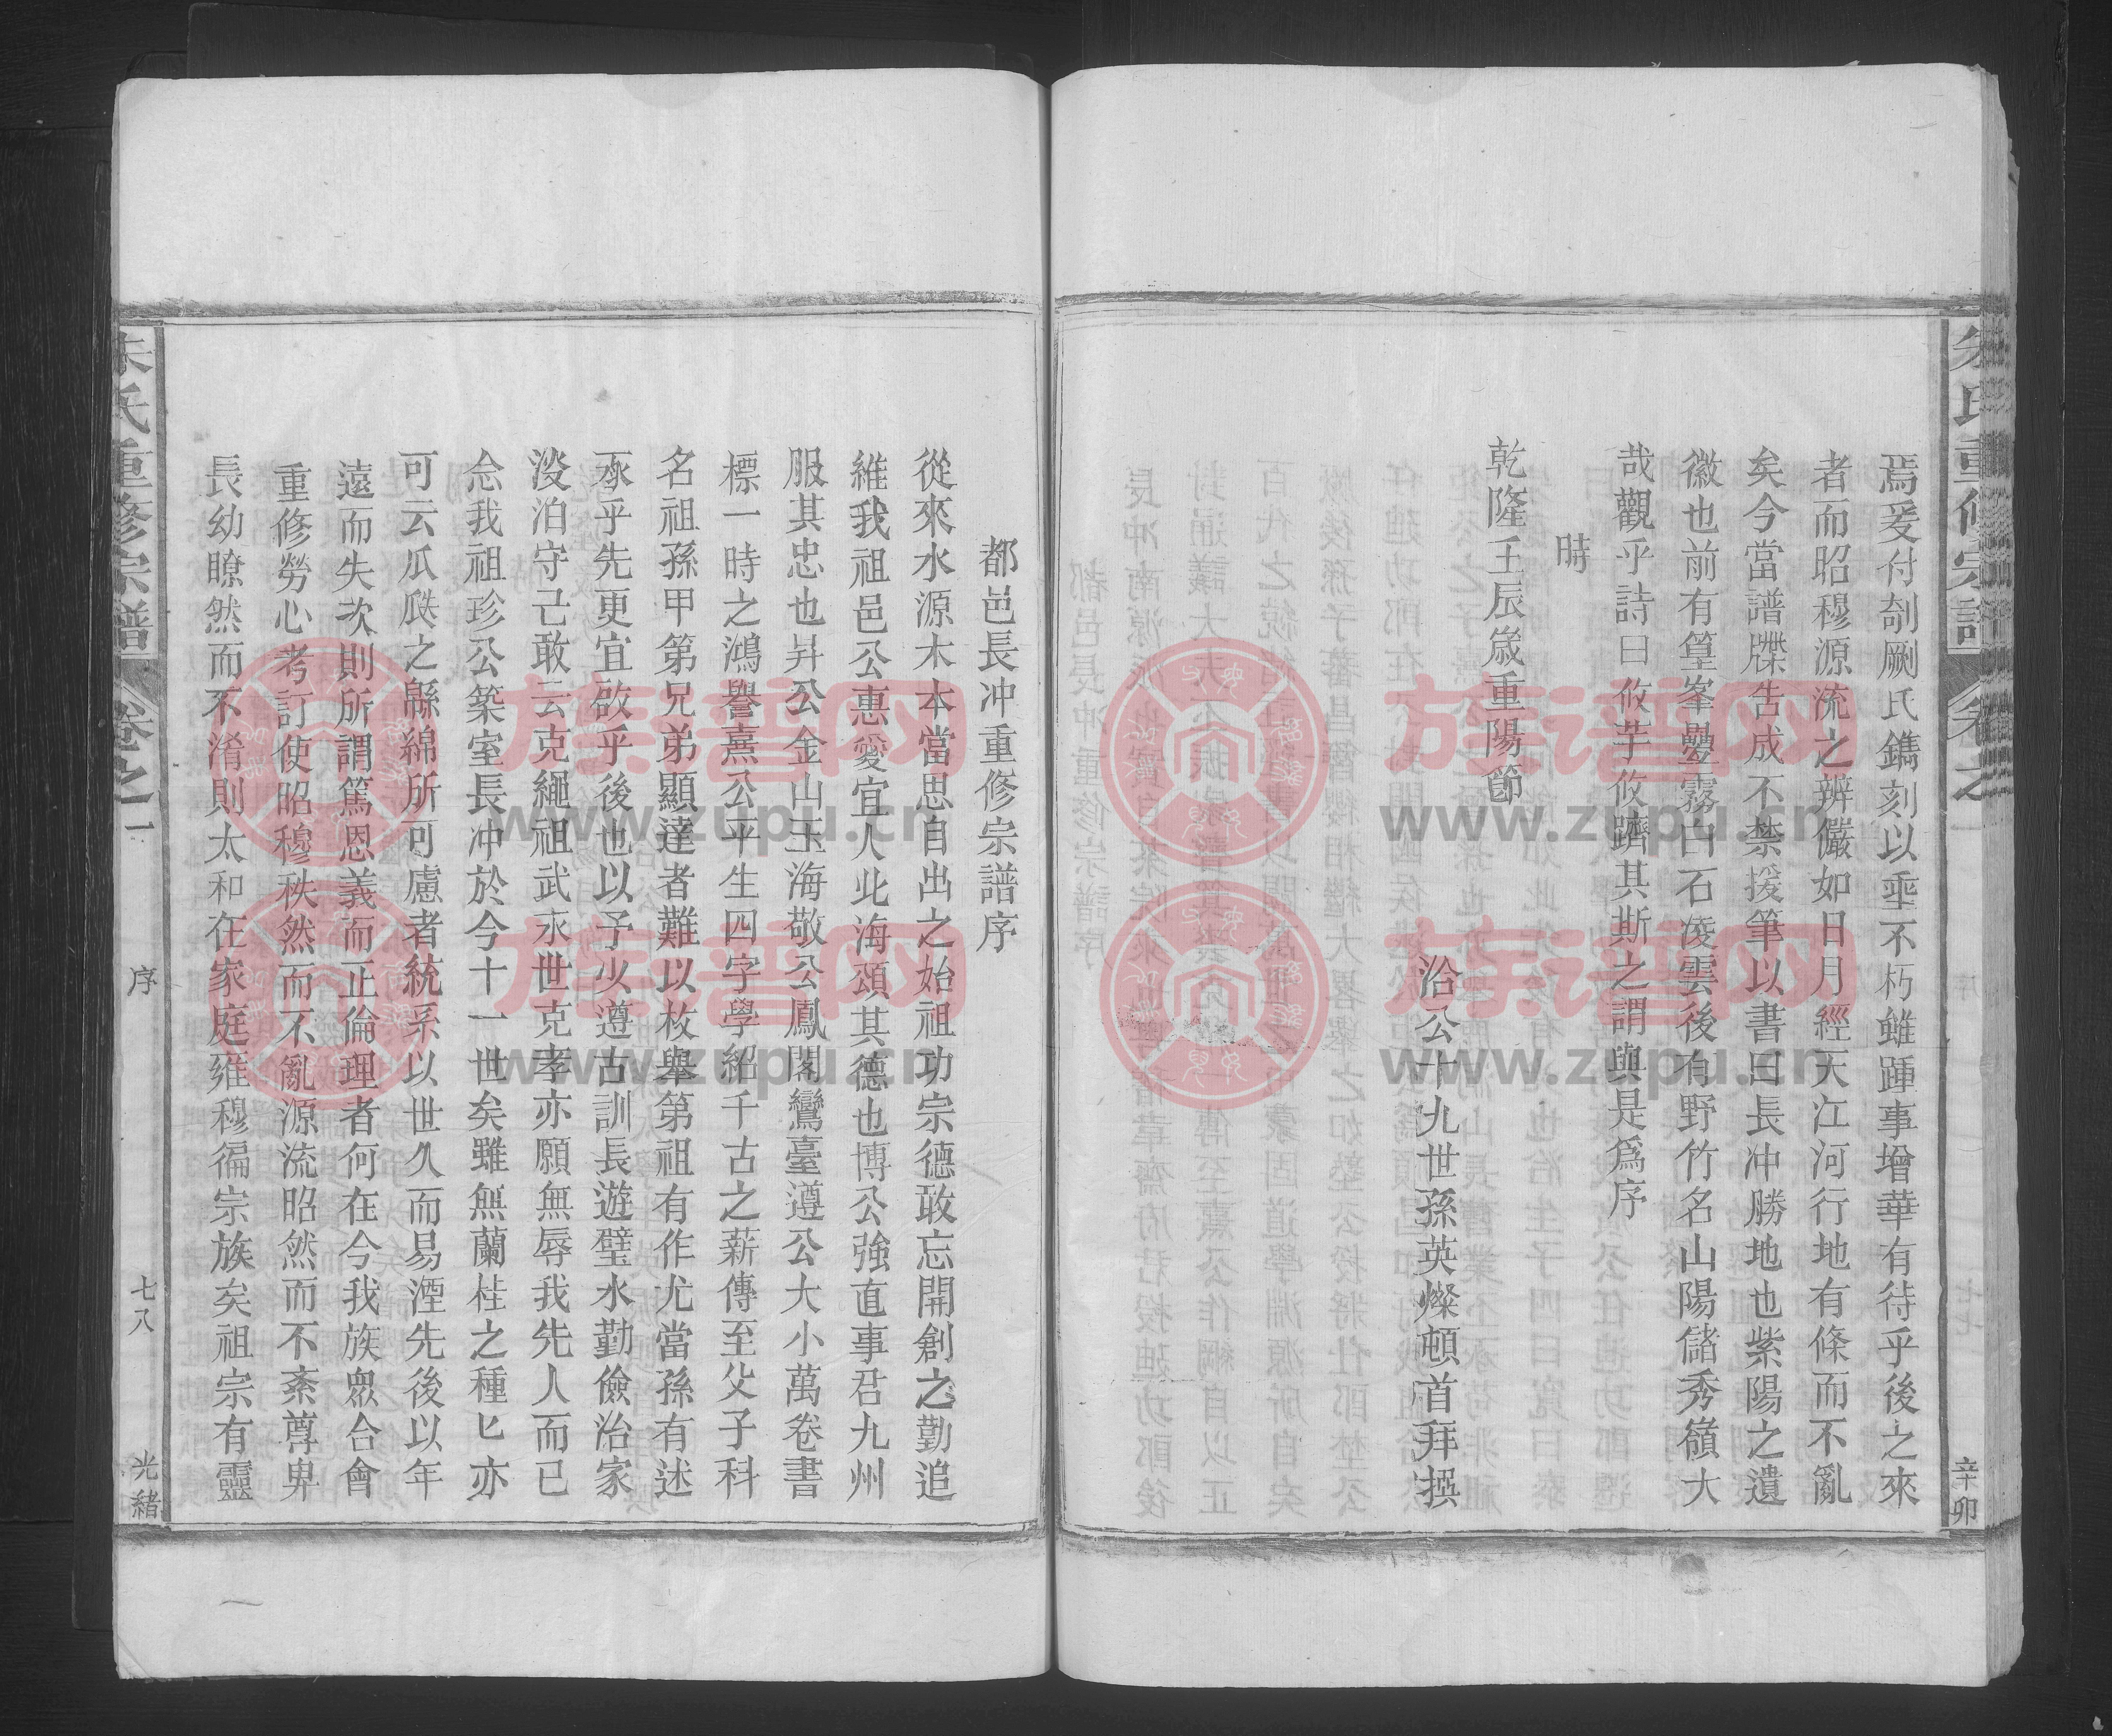 朱氏重修宗譜
卷之一
辛卯
焉爰付剞劂氏鐫刻以垂不朽雖踵事增華有待乎後之來
者而昭穆源流之辨儼如日月經天江河行地有條而不亂
矣今當譜牒告成不禁援筆以書曰長冲勝地也紫陽之遺
徽也前有篁峯疊霧白石凌雲後有野竹名山陽儲秀嶺大
哉觀乎詩曰攸芋攸躋其斯之謂與是爲序
時
乾隆壬辰嵗重陽節
洽公十九世孫英燦頓首拜撰
都邑長冲重修宗譜序
從來水源木本當思自出之始祖功宗德敢忘開創之勤追
維我祖邑公惠愛宜人北海頌其德也博公強直事君九州
服其忠也昇公金山玉海敬公鳳閣鸞臺遵公大小萬卷書
標一時之鴻譽熹公平生四字學紹千古之薪傳至父子科
名祖孫甲第兄弟顯達者難以枚舉第祖有作尤當孫有述
承乎先更宜啟乎後也以予少遵古訓長遊璧水勤儉治家
淡泊守己敢云克繩祖武永世克孝亦願無辱我先人而已
念我祖珍公築室長冲於今十一世矣雖無蘭桂之種匕亦
可云瓜瓞之緜綿所可慮者統系以世久而易湮先後以年
遠而失次則所謂篤恩義而正倫理者何在今我族衆合會
重修勞心考訂使昭穆秩然而不亂源流昭然而不紊尊卑
長幼瞭然而不淆則太和在家庭雍穆徧宗族矣祖宗有靈
朱氏重修宗譜
卷之一
序
七八
光緒
族谱网
www.zupu.cn
族谱网
www.zupu.cn
族谱网
www.zupu.cn
族谱网
www.zupu.cn